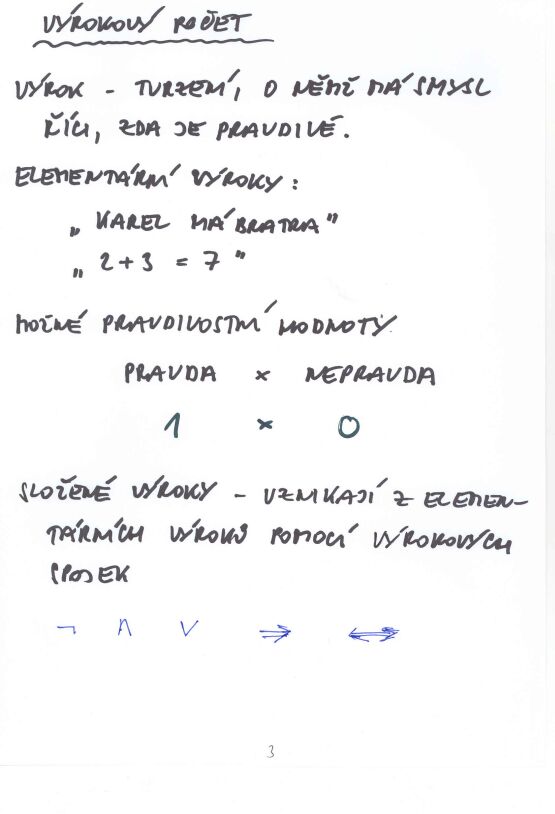 VÝROKOVÝ POČET
VÝROK - TVRZENÍ, O NĚMŽ MÁ SMYSL
ŘÍCI, ZDA JE PRAVDIVÉ.
ELEMENTÁRNÍ VÝROKY:
„KAREL MÁ BRATRA"
„2+3 = 7"
MOŽNÉ PRAVDIVOSTNÍ HODNOTY
PRAVDA × NEPRAVDA
1 × 0
SLOŽENÉ VÝROKY - VZNIKAJÍ Z ELEMEN-
TÁRNÍCH VÝROKŮ POMOCÍ VÝROKOVÝCH
SPOJEK
¬ ∧ ∨ ⇒ ⇔
3